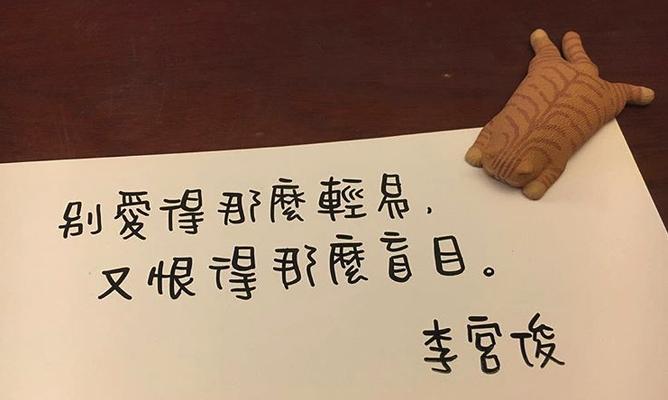 別愛得那麼輕易，
又恨得那麼盲目。
李宮俊